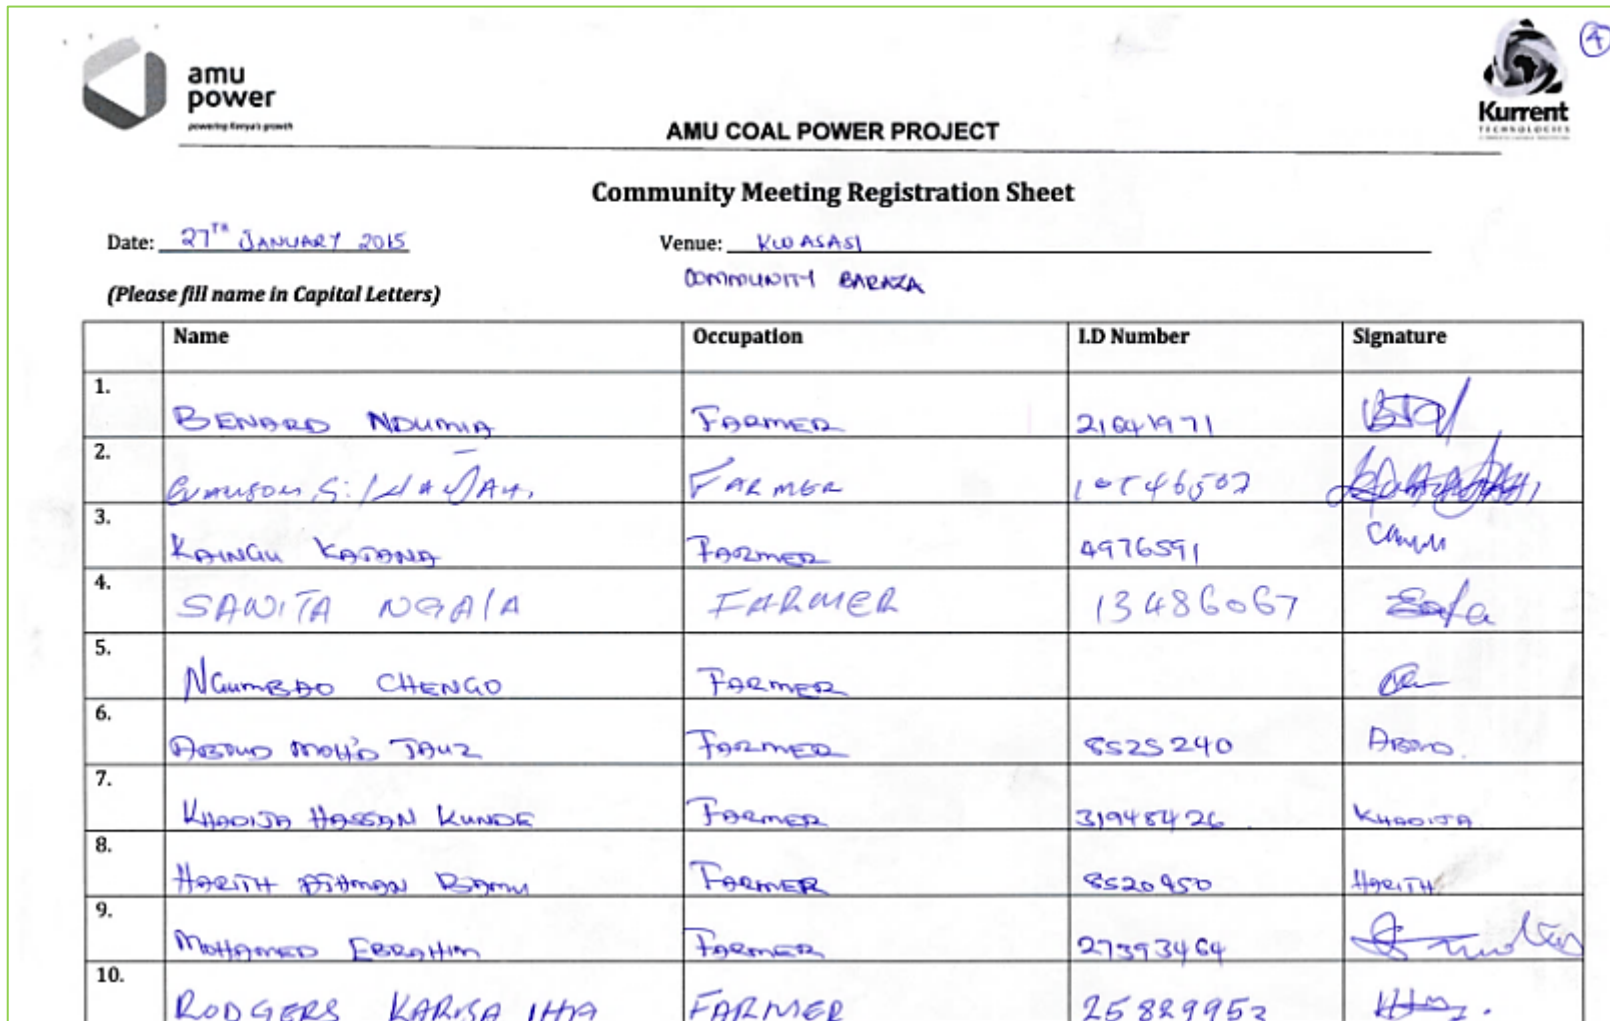 4
amu
power
powering Kenya's growth
Kurrent
TECHNOLOGIES
AMU COAL POWER PROJECT
Community Meeting Registration Sheet
Date: 27TH JANUARY 2015 Venue: KWASASI
COMMUNITY BARAZA
(Please fill name in Capital Letters)
Name Occupation I.D Number Signature
1. BENARD NDUMIA FARMER 21641971
2. FARMER
3. KAINGU KATANA FARMER 4976591
4. SANITA NGALA FARMER 13486067
5. NGUMBAO CHENGO FARMER
6. ABDUD MOH'D FARMER 8525240
7. KHADIJA HASSAN KUNDE FARMER 31948426 KHADIJA
8. HARITH FARMER 8520950 HARITH
9. MOHAMED EBRAHIM FARMER 27393464
10. RODGERS KARISA IHA FARMER 25829952